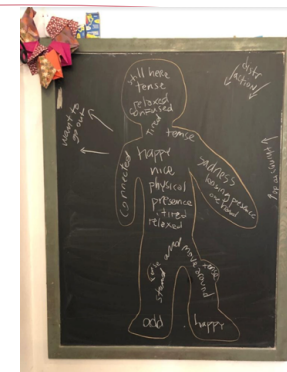 still here
tense
relaxed
confused
tired
tense
distr
action
want to
go out
connected
happy
nice
physical
presence
tired
relaxed
sadness
loosing presence
one hand
things to do
stand
and
move around
odd
happy